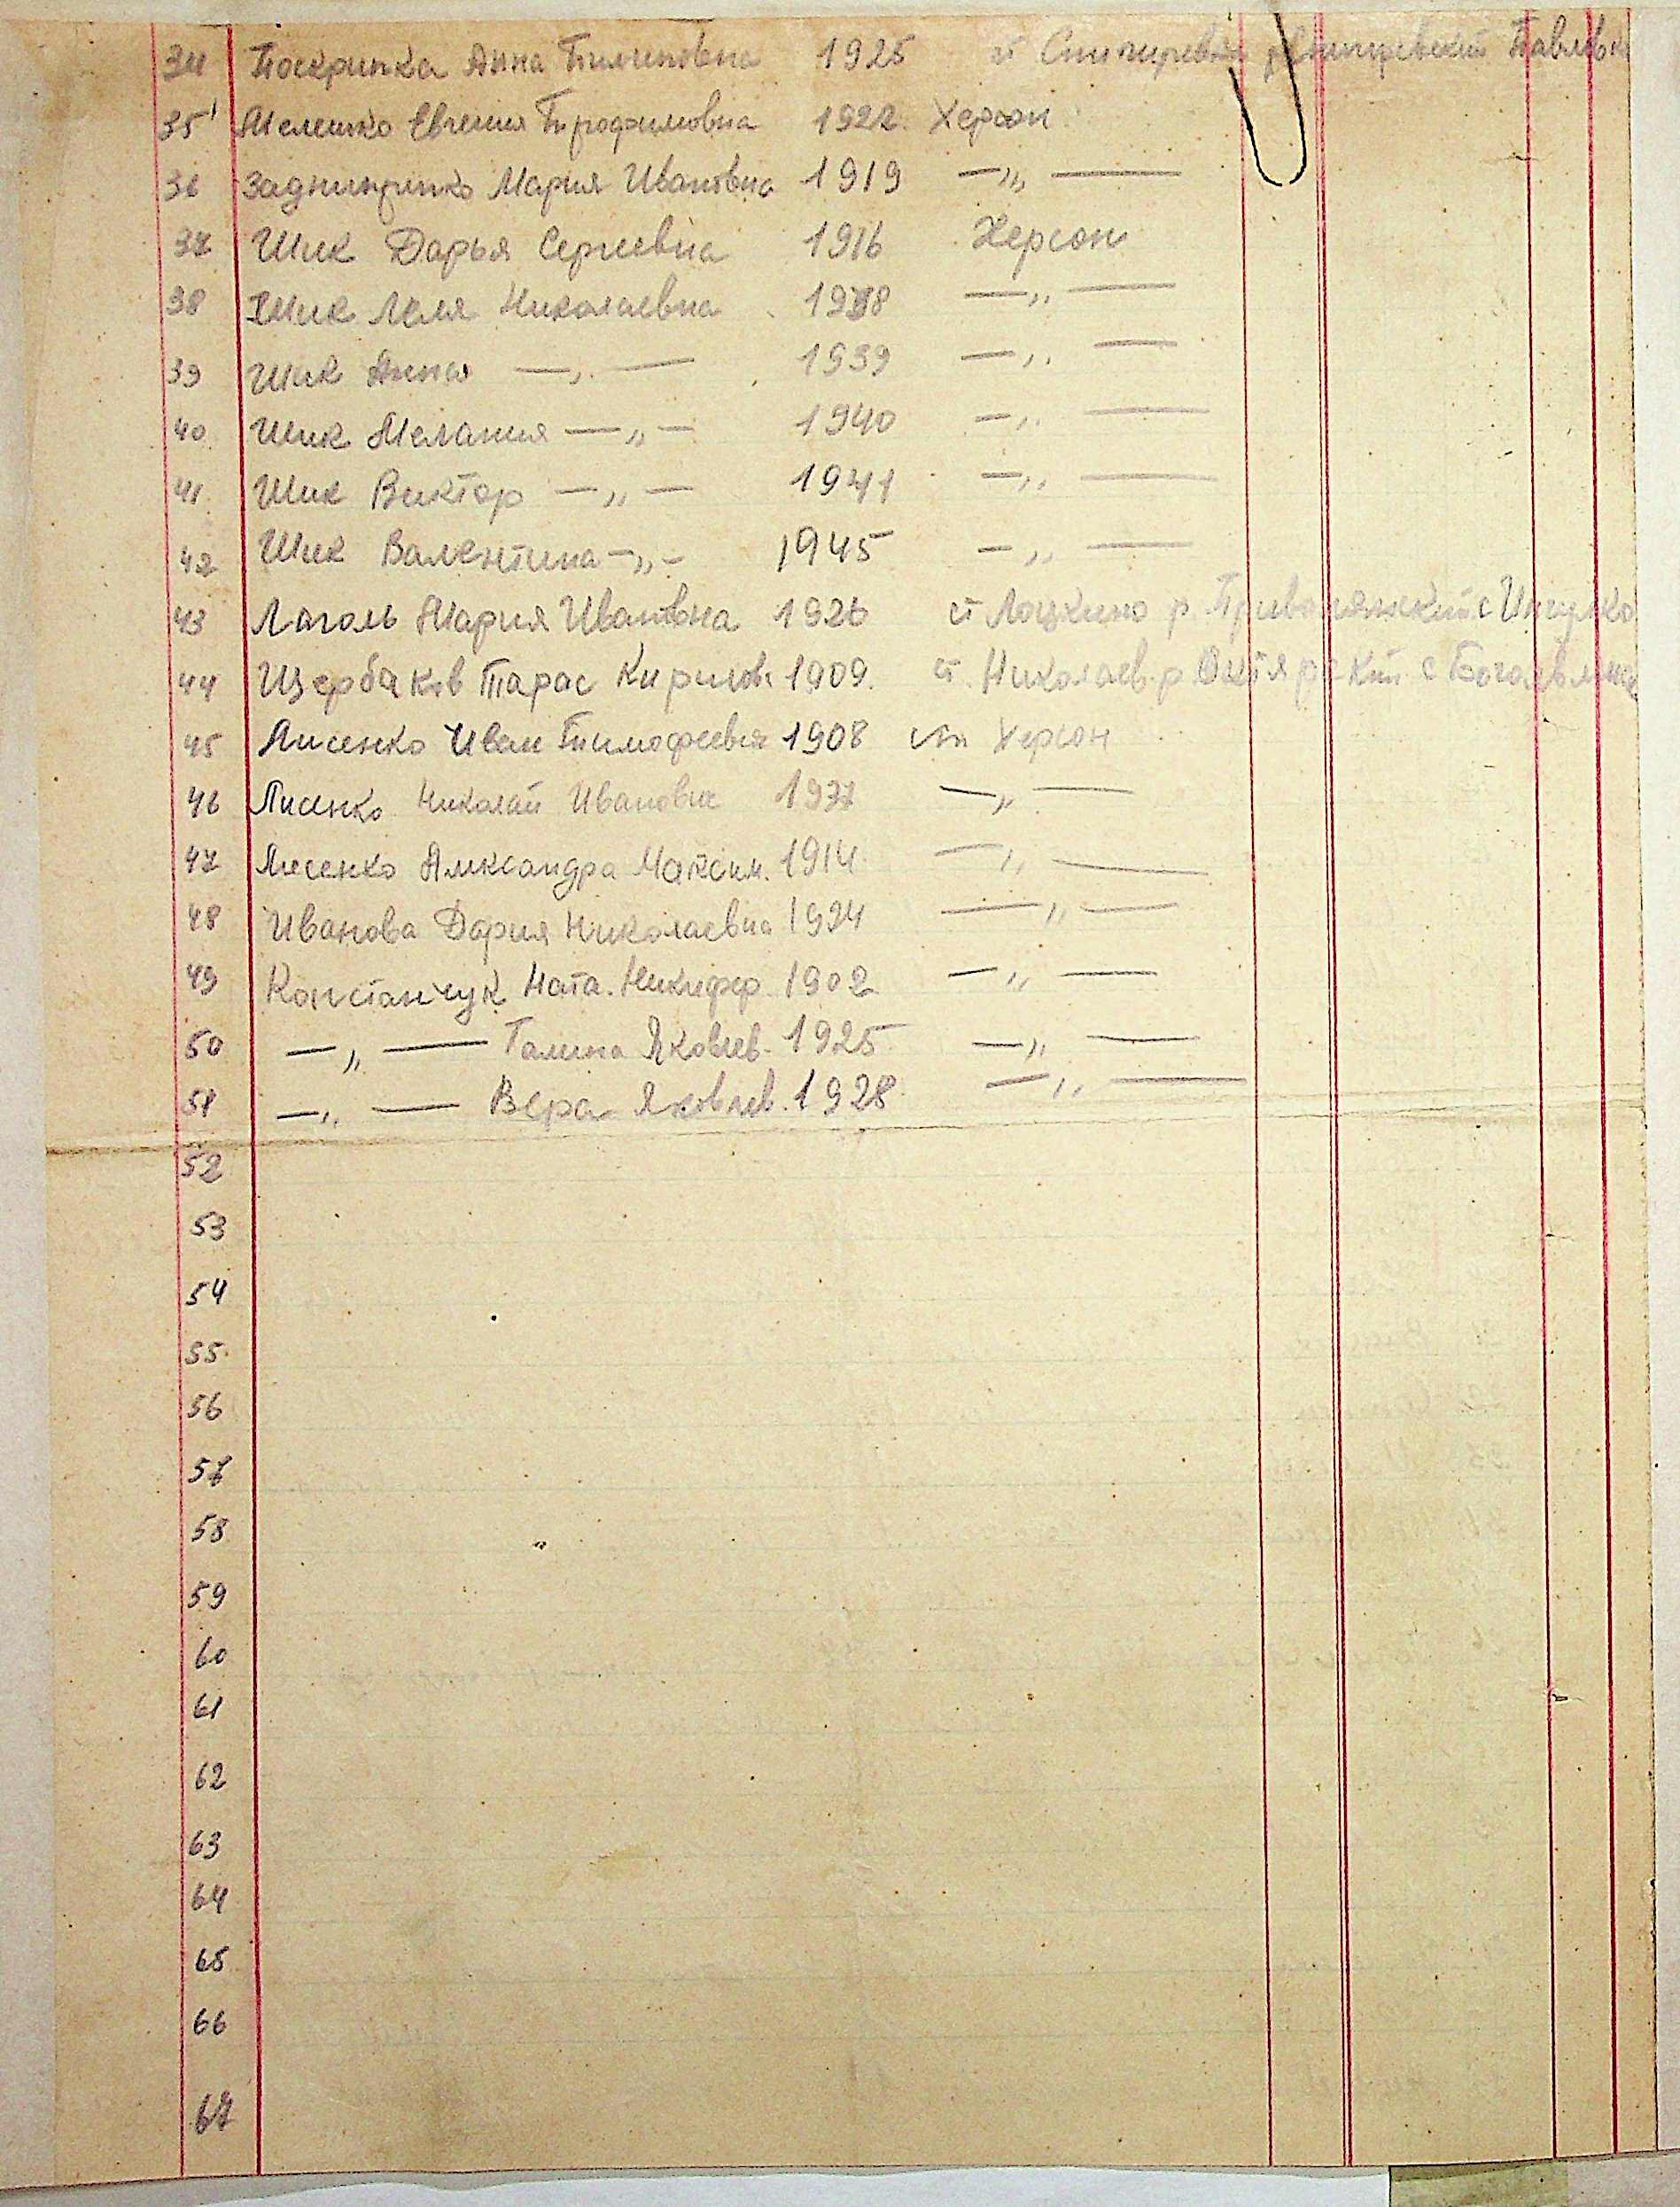 34 Поскрипка Анна 1925 ст Павловка
35 Мелешко Евгения Трофимовна 1922. Херсон
36 Заднипрянко Мария Ивановна 1919 —„—
37 Шик Дарья Сергеевна 1916 Херсон
38 Шик Леля Николаевна 1938 —„—
39 Шик Анна —„— 1939 —„—
40 Шик Мелания —„— 1940 —„—
41 Шик Виктор —„— 1941 —„—
42 Шик Валентина —„— 1945 —„—
43 Лаголь Мария Ивановна 1926 ст Лоцкино р. с
44 Щербаков Тарас Кирилов. 1909. ст. Николаев. р с
45 Лисенко Иван Тимофеевич 1908 ст Херсон
46 Лисенко Николай Иванович 1937 —„—
47 Лисенко Александра Максим. 1914 —„—
48 Иванова Дария Николаевна 1924 —„—
49 Констанчук Ната. Никифор. 1902 —„—
50 —„— Галина Яковлев. 1925 —„—
51 —„— Вера Яковлев. 1928 —„—
52
53
54
55
56
57
58
59
60
61
62
63
64
65
66
67